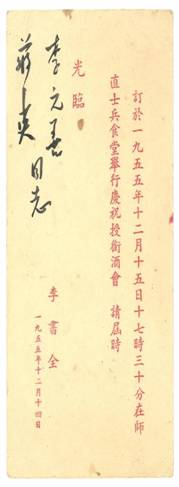 訂於一九五五年十二月十五日十七時三十分在師
直士兵食堂舉行慶祝授銜酒會 請屆時
光臨
李元善
蔣英同志
李書全
一九五五年十二月十四日